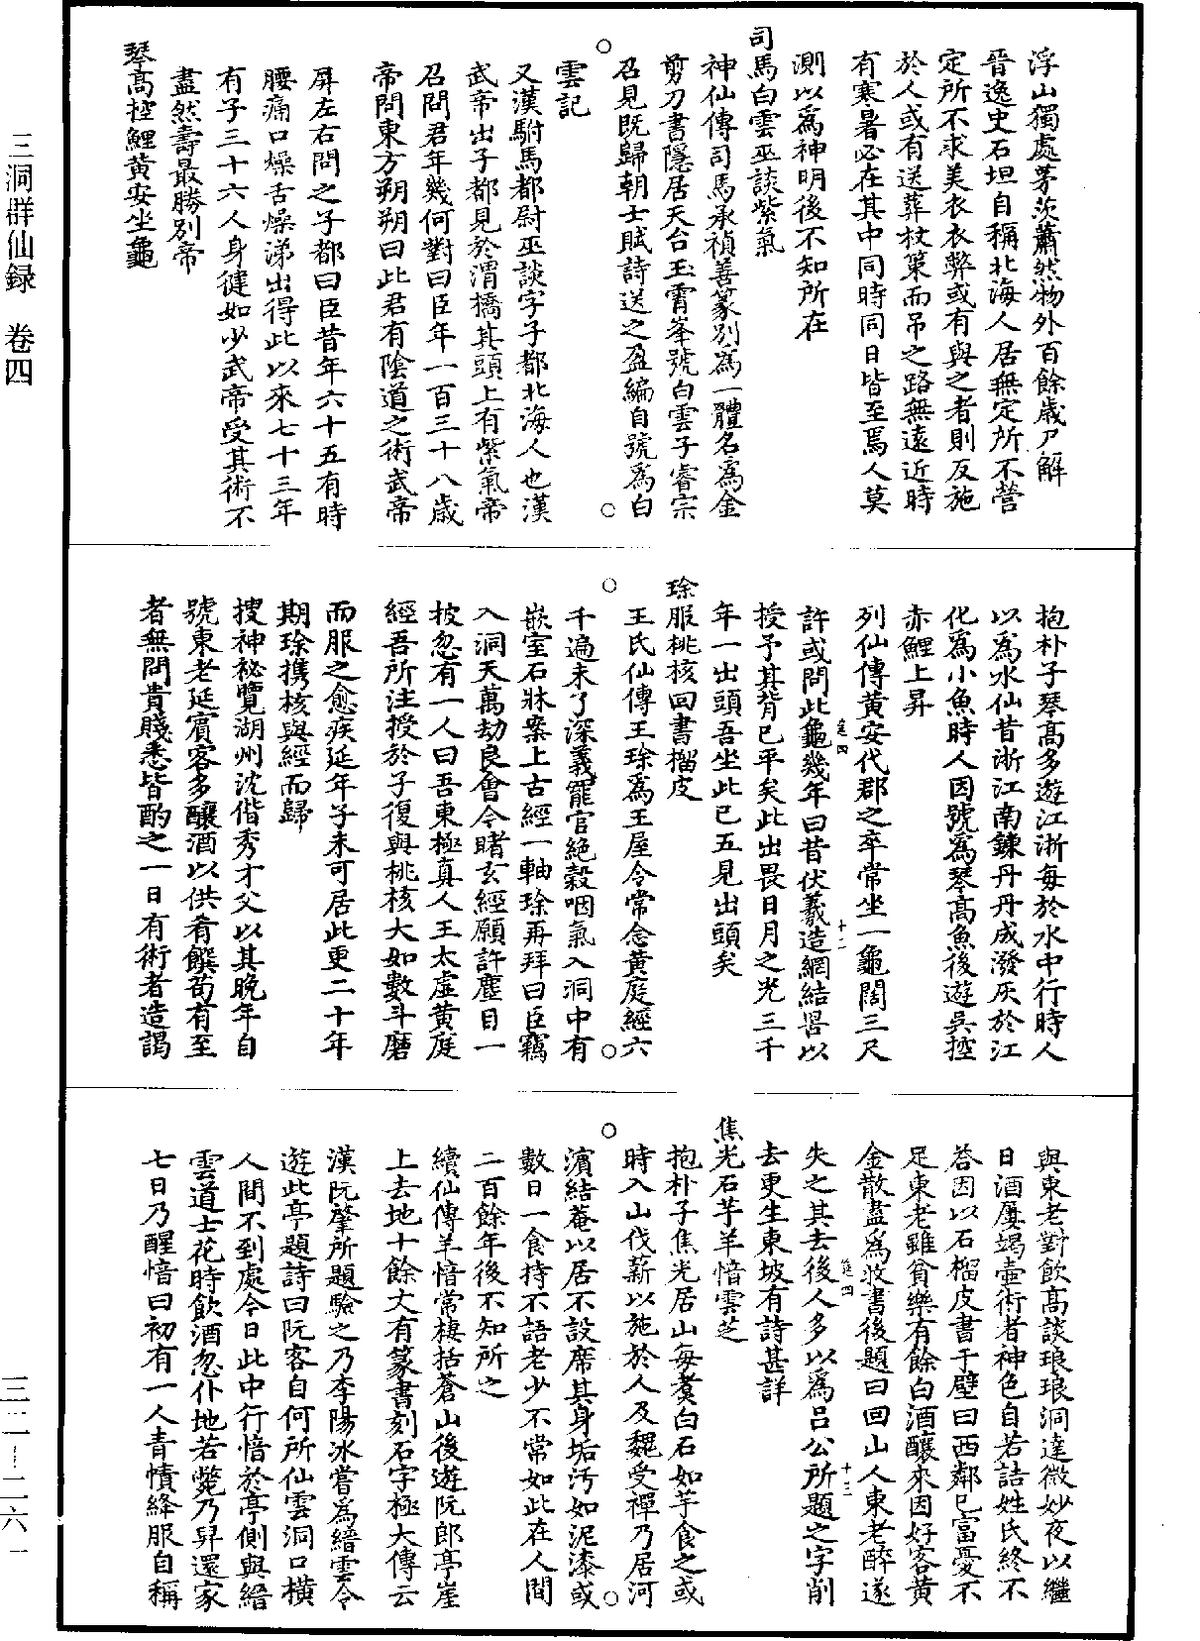 浮山獨處茅茨蕭然物外百餘歲尸解
晉逸史石坦自稱北海人居無定所不營
定所不求美衣衣弊或有與之者則反施
於人或有送葬杖策而吊之路無遠近時
有寒暑必在其中同時同日皆至焉人莫
測以爲神明後不知所在
司馬白雲巫談紫氣
神仙傳司馬承禎善篆別爲一體名爲金
剪刀書隱居天台玉霄峯號白雲子睿宗
召見既歸朝士賦詩送之盈編自號爲白
雲記
又漢駙馬都尉巫談字子都北海人也漢
武帝出子都見於渭橋其頭上有紫氣帝
召問君年幾何對曰臣年一百三十八歲
帝問東方朔朔曰此君有陰道之術武帝
屏左右問之子都曰臣昔年六十五有時
腰痛口燥舌燥涕出得此以來七十三年
有子三十六人身健如少武帝受其術不
盡然壽最勝別帝
琴高控鯉黄安坐龜
抱朴子琴高多遊江浙每於水中行時人
以爲水仙昔浙江南鍊丹丹成潑灰於江
化爲小魚時人因號爲琴高魚後遊吳控
赤鯉上昇
列仙傳黄安代郡之卒常坐一龜闊三尺
許或問此龜幾年曰昔伏羲造網結罟以
授予其背已平矣此出畏日月之光三千
年一出頭吾坐此已五見出頭矣
珎服桃核回書榴皮
王氏仙傳王珎爲王屋令常念黄庭經六
千遍未了深義罷官絶穀咽氣入洞中有
嵌室石牀案上古經一軸珎再拜曰臣竊
入洞天萬劫良會今睹玄經願許塵目一
披忽有一人曰吾東極真人王太虛黄庭
經吾所注授於子復與桃核大如數斗磨
而服之愈疾延年子未可居此更二十年
期珎携核與經而歸
搜神祕覽湖州沈偕秀才父以其晚年自
號東老延賓客多釀酒以供肴饌苟有至
者無問貴賤悉皆酌之一日有術者造謁
與東老對飲高談琅琅洞達微妙夜以繼
日酒屢竭壺術者神色自若詰姓氏終不
答因以石榴皮書于壁曰西鄰已富憂不
足東老雖貧樂有餘白酒釀來因好客黄
金散盡爲收書後題曰回山人東老醉遂
失之其去後人多以爲吕公所題之字削
去更生東坡有詩甚詳
焦光石芋羊愔雲芝
抱朴子焦光居山每煑白石如芋食之或
時入山伐薪以施於人及魏受禪乃居河
濱結菴以居不設席其身垢污如泥漆或
數日一食持不語老少不常如此在人間
二百餘年後不知所之
續仙傳羊愔常棲括蒼山後遊阮郎亭崖
上去地十餘丈有篆書刻石字極大傳云
漢阮肇所題驗之乃李陽冰嘗爲縉雲令
遊此亭題詩曰阮客自何所仙雲洞口横
人間不到處今日此中行愔於亭側與縉
雲道士花時飲酒忽仆地若斃乃舁還家
七日乃醒愔曰初有一人青幘絳服自稱
三洞群仙録　卷四
三二—二六一
筵四
十二
筵四
十三